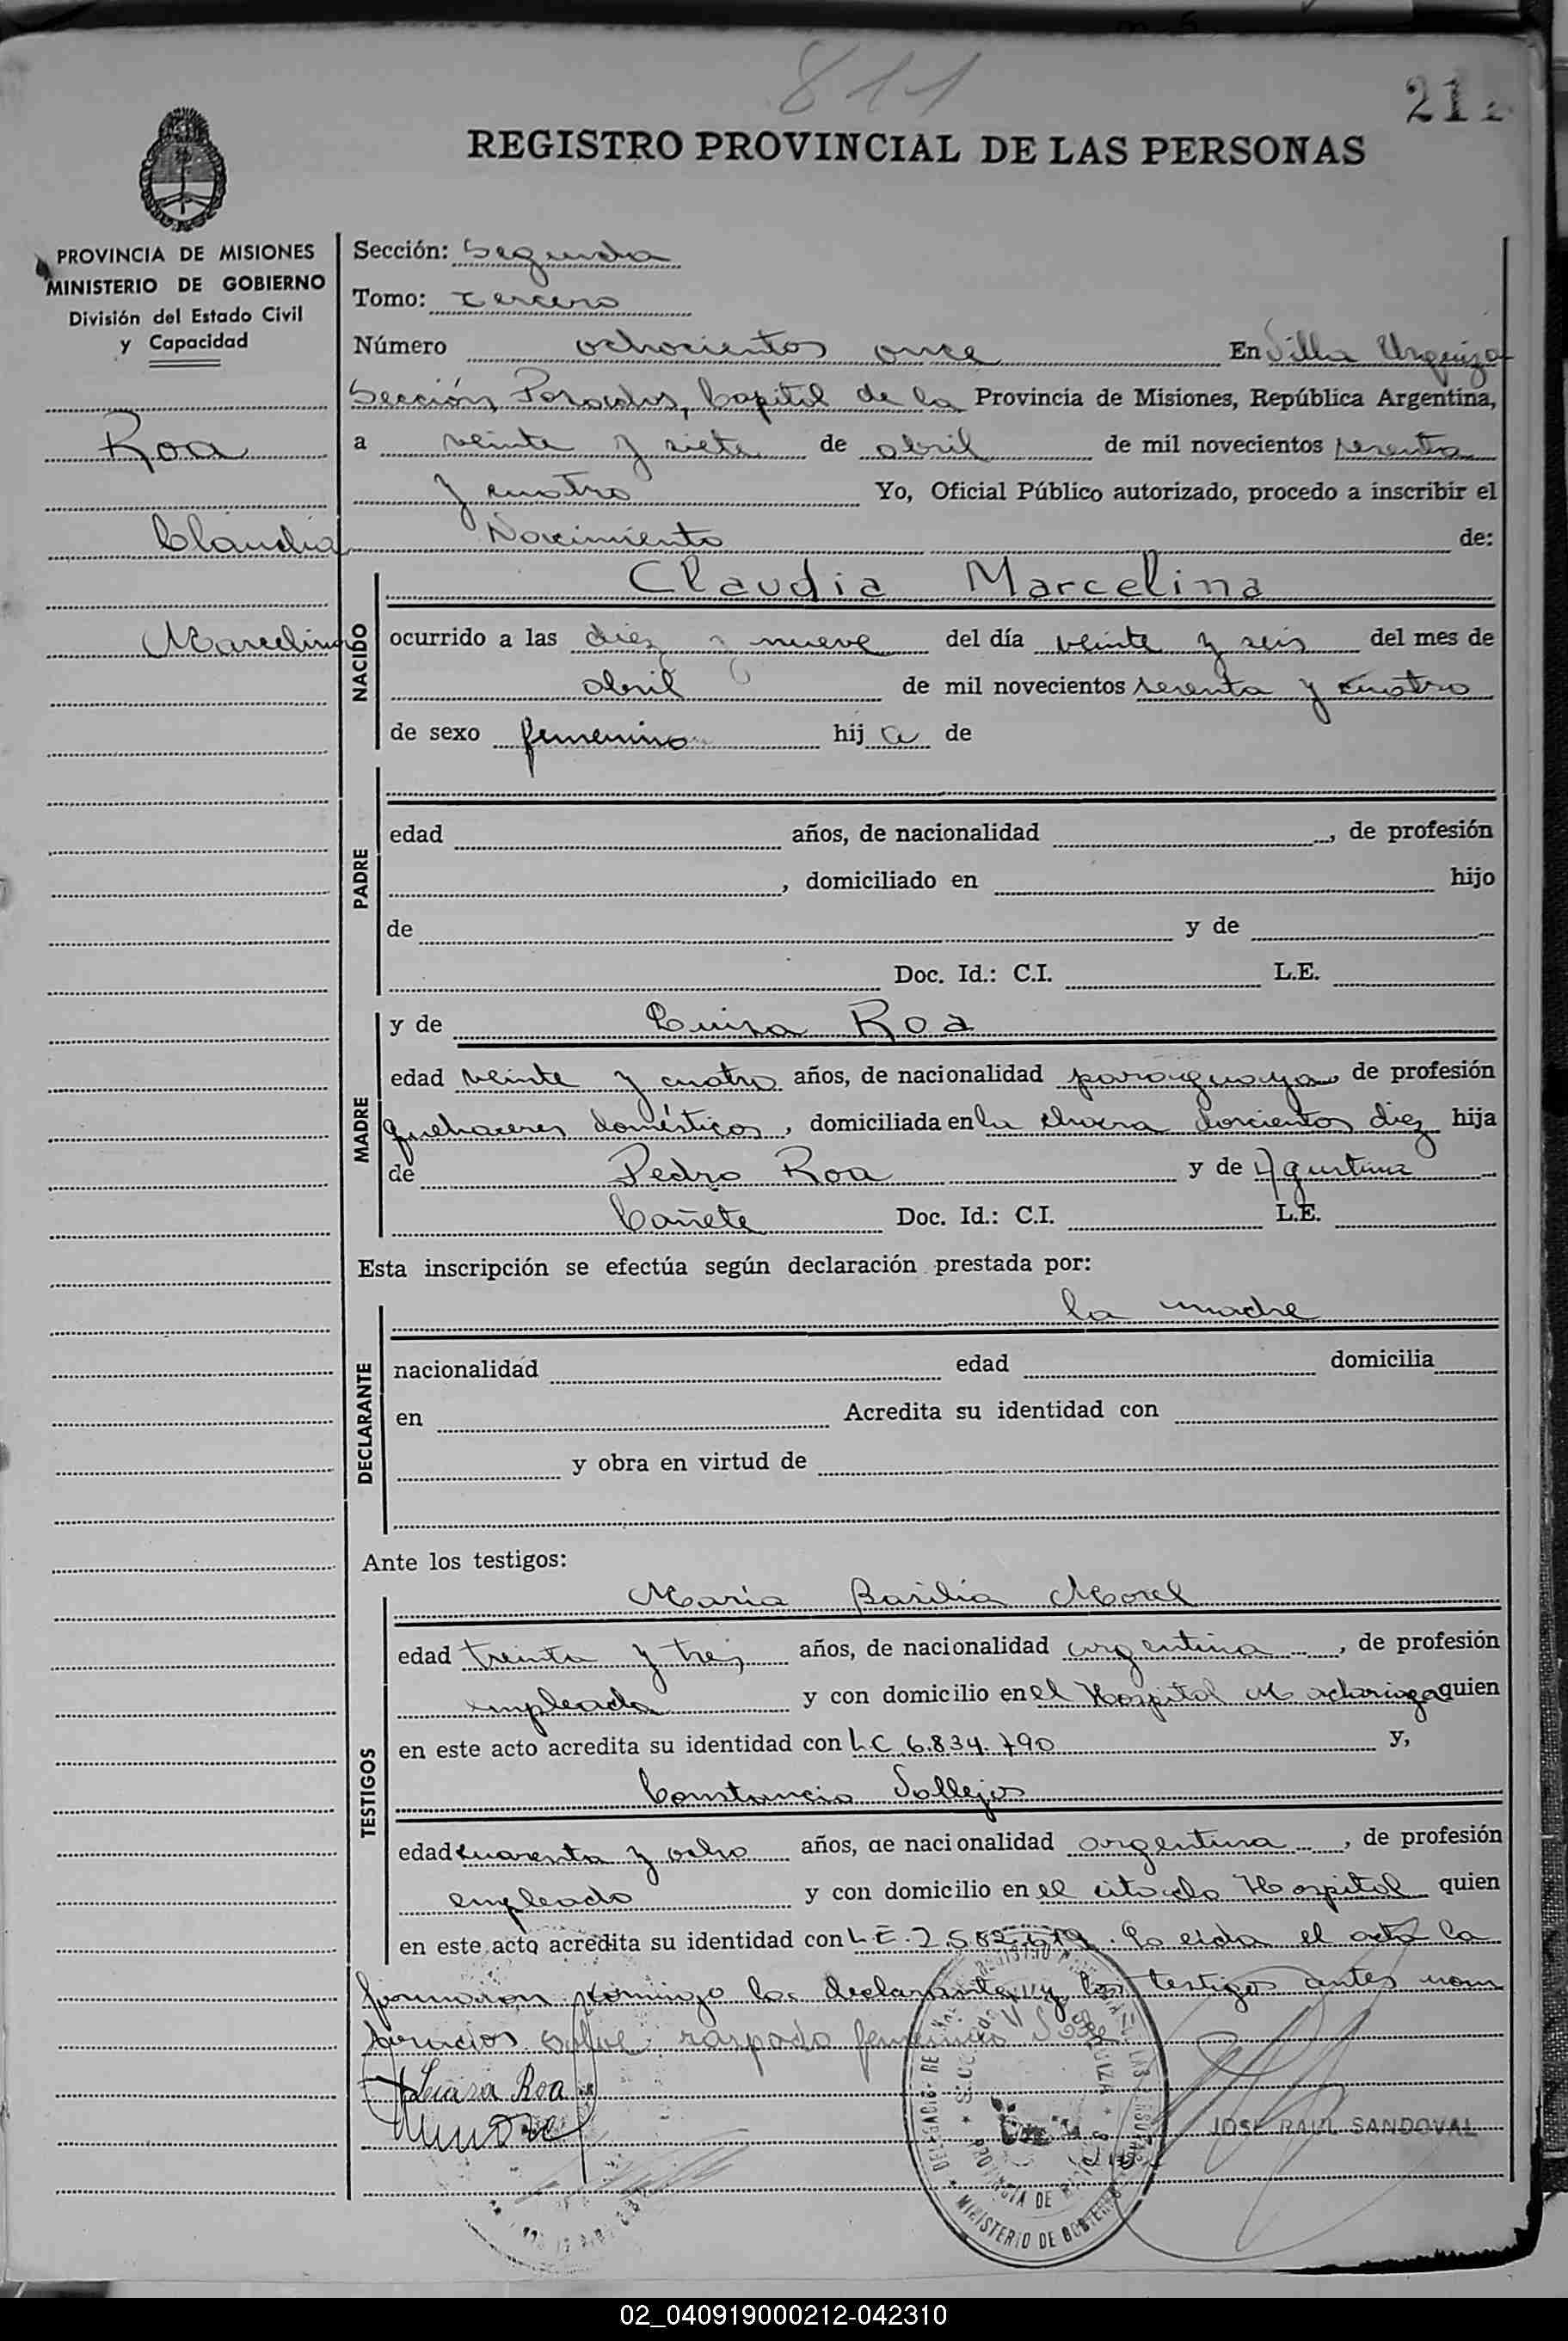 811
212
REGISTRO PROVINCIAL DE LAS PERSONAS
PROVINCIA DE MISIONES
MINISTERIO DE GOBIERNO
División del Estado Civil
y Capacidad
Roa
Claudia
Marcelina
Sección: Segunda
Tomo: tercero
Número ochocientos once En Villa Urquiza
Sección, Posadas, Capital de la Provincia de Misiones, República Argentina,
a veinte y siete de abril de mil novecientos sesenta
y cuatro Yo, Oficial Público autorizado, procedo a inscribir el
Nacimiento de:
NACIDO
Claudia Marcelina
ocurrido a las diez y nueve del día veinte y seis del mes de
abril de mil novecientos sesenta y cuatro
de sexo femenino hija de
PADRE
edad años, de nacionalidad , de profesión
, domiciliado en hijo
de y de
Doc. Id.: C.I. L.E.
MADRE
y de Luisa Roa
edad veinte y cuatro años, de nacionalidad paraguaya de profesión
quehaceres domésticos, domiciliada en la chacra doscientos diez hija
de Pedro Roa y de Agustina
Cañete Doc. Id.: C.I. L.E.
Esta inscripción se efectúa según declaración prestada por:
DECLARANTE
la madre
nacionalidad edad domicilia
en Acredita su identidad con
y obra en virtud de
Ante los testigos:
TESTIGOS
María Basilia Morel
edad treinta y tres años, de nacionalidad argentina, de profesión
empleada y con domicilio en el Hospital Madariaga quien
en este acto acredita su identidad con L.C. 6.834.790 y,
Constancio Vallejos
edad cuarenta y ocho años, de nacionalidad argentina, de profesión
empleado y con domicilio en el citado Hospital quien
en este acto acredita su identidad con L.E. Leida el acta la
firmaron conmigo la declarante y los testigos antes nom
brados salve raspado femenino
Luisa Roa
JOSE RAUL SANDOVAL
MINISTERIO DE GOBIERNO
PROVINCIA DE MISIONES
02_040919000212-042310